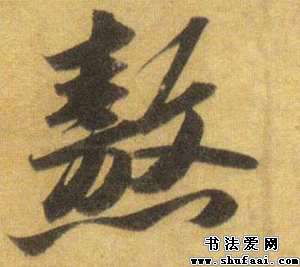 熬
书法爱网
www.shufaai.com